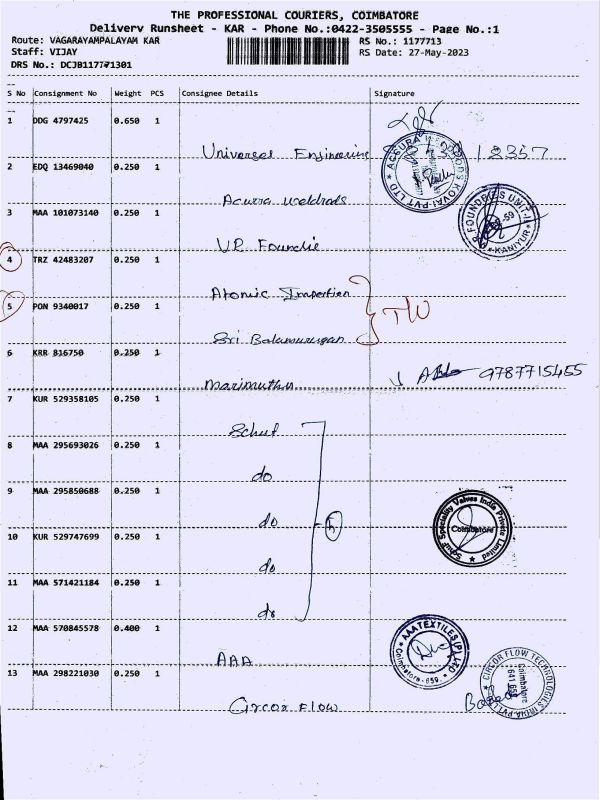 THE PROFESSIONAL COURIERS, COIMBATORE
Delivery Runsheet - KAR - Phone No.:0422-3505555 - Page No.:1
Route: VAGARAYAMPALAYAM KAR RS No.: 1177713
Staff: VIJAY RS Date: 27-May-2023
DRS No.: DCJB117771301
S No Consignment No Weight PCS Consignee Details Signature
1 DDG 4797425 0.650 1
Universal Engineering 18357
2 EDQ 13469040 0.250 1
ACCURA WELDRODS KOVAI PVT LTD
Acurra weldrods
3 MAA 101073140 0.250 1
V.P. FOUNDRIES UNIT-II KANIYUR -59
V.P. Foundie
4 TRZ 42483207 0.250 1
Atomic Impertion
5 PON 9340017 0.250 1
T/W
Sri Balamurugan
6 KRR 816750 0.250 1
Marimuthu 9787715455
7 KUR 529358105 0.250 1
Schuf
8 MAA 295693026 0.250 1
do
9 MAA 295850688 0.250 1
do 5
Schuf Speciality Valves India Private Limited Coimbatore
10 KUR 529747699 0.250 1
do
11 MAA 571421184 0.250 1
do
12 MAA 570845578 0.400 1
AAA TEXTILES (P) LTD Coimbatore-659.
AAA
13 MAA 298221030 0.250 1
CIRCOR FLOW TECHNOLOGIES INDIA PVT LTD Coimbatore 641 659
Circor Flow